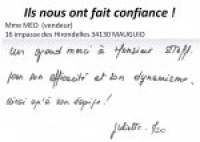 Ils nous ont fait confiance !
Mme MEO (vendeur)
16 impasse des Hirondelles 34130 MAUGUIO
Un grand merci à Monsieur Staff.
pour son efficacité et son dynamisme.
ainsi qu'à son équipe !
Juliette